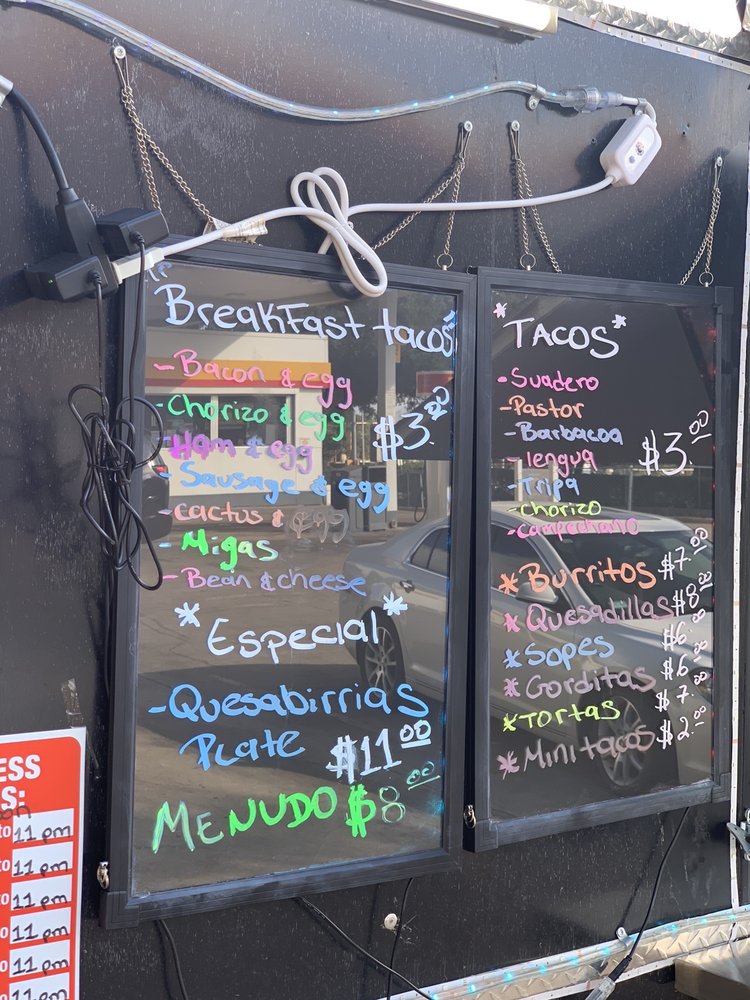 BreakFast tacos
- Bacon & egg
- Chorizo & egg
- Ham & egg
$3.00
- Sausage & egg
- cactus & egg
- Migas
- Bean & cheese
* Especial *
- Quesabirrias
Plate $11.00
MENUDO $8.00
* TACOS *
- Suadero
- Pastor
- Barbacoa
- lengua
$3.00
- Tripa
- Chorizo
- campechano
* Burritos $7.00
* Quesadillas $8.00
* Sopes $6.00
* Gorditas $6.00
* Tortas $7.00
* Mini tacos $2.00
ESS
S:
to 11 pm
to 11 pm
to 11 pm
to 11 pm
to 11 pm
11 pm